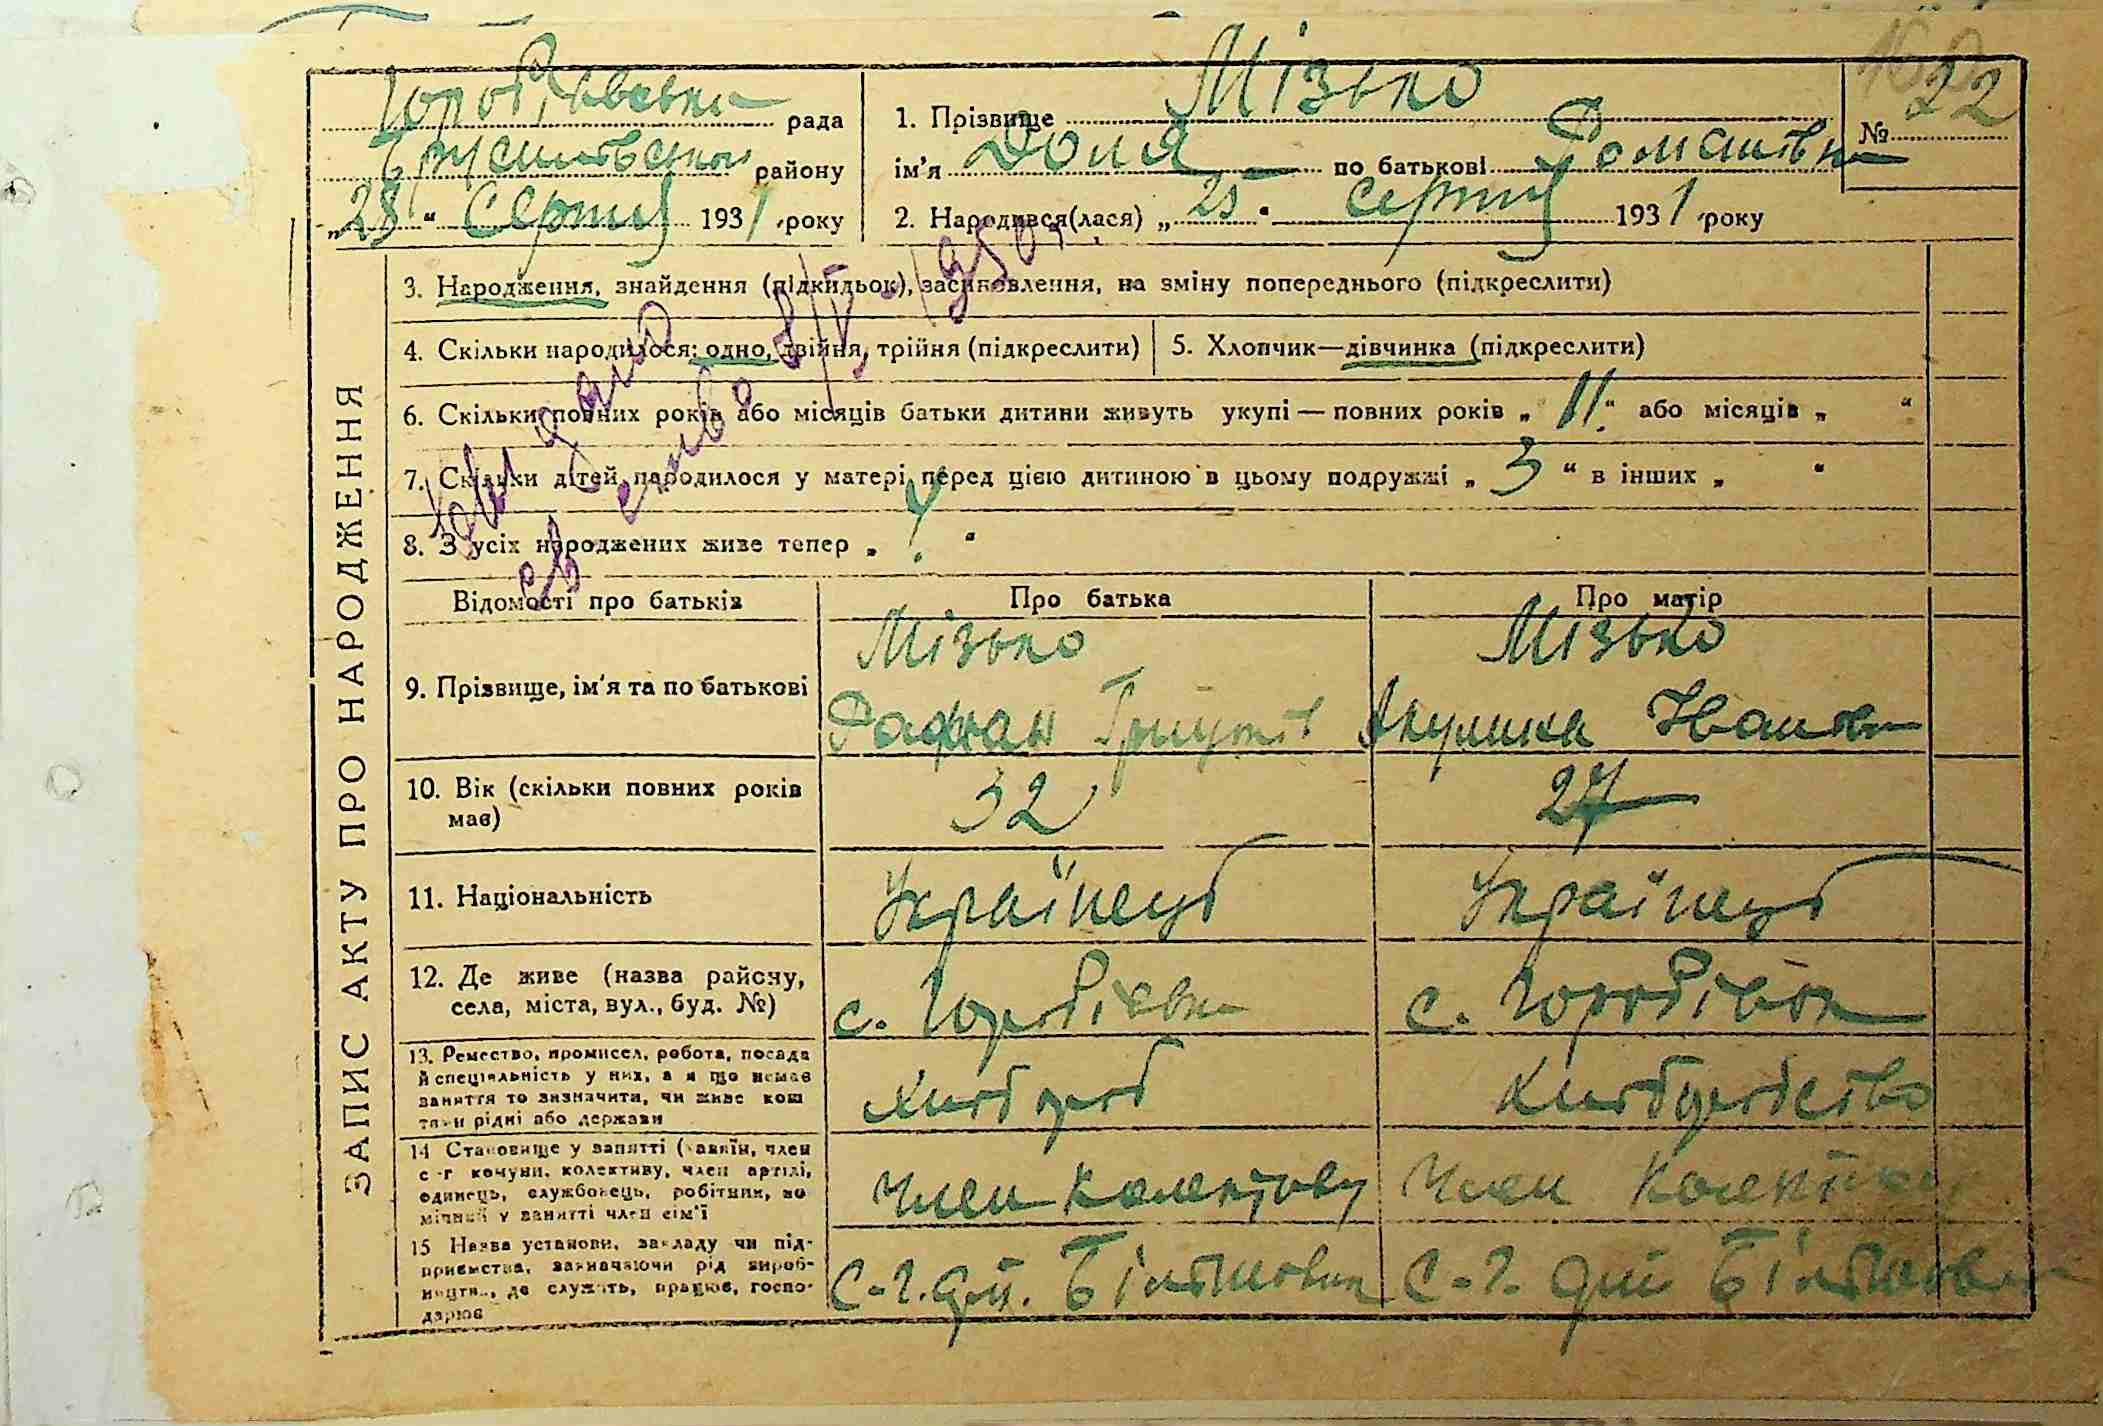 рада
Брусилівського району
„28“ Серпня 1931 року
1. Прізвище Мізько
ім'я по батькові
2. Народився(лася) „25“ серпня 1931 року
№ 22
ЗАПИС АКТУ ПРО НАРОДЖЕННЯ
3. Народження, знайдення (підкидьок), засиновлення, на зміну попереднього (підкреслити)
4. Скільки народилося: одно, двійня, трійня (підкреслити)
5. Хлопчик—дівчинка (підкреслити)
6. Скільки повних років або місяців батьки дитини живуть укупі — повних років „11“ або місяців „ “
7. Скільки дітей народилося у матері перед цією дитиною в цьому подружжі „3“ в інших „ “
8. З усіх народжених живе тепер „ “
Видано
1950
Відомості про батьків
Про батька
Про матір
9. Прізвище, ім'я та по батькові
Мізько
Мізько
Іванівна
10. Вік (скільки повних років
має)
32
27
11. Національність
Українець
Українець
12. Де живе (назва району,
села, міста, вул., буд. №)
с.
с.
13. Ремество, промисел, робота, посада
й спеціяльність у них, а я що немає
заняття то визначити, чи живе кош
тами рідні або держави
Хлібороб
Хліборобство
14 Становище у занятті (хазяїн, член
с-г комуни, колективу, член артілі,
одинець, службовець, робітник, по
мічний у занятті член сім'ї
Член колективу
Член колективу
15 Назва установи, закладу чи під-
приємства, зазначаючи рід вироб-
ництва, де служить, працює, госпо-
дарює
С-г.
С-г.